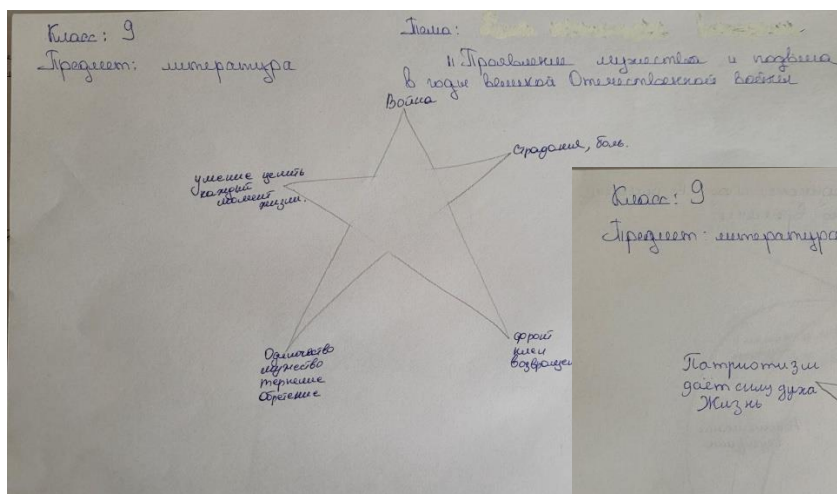 Класс: 9
Тема:
Предмет: литература
"Проявление мужества и подвига
в годы великой Отечественной войны
Война
Страдания, боль.
умение ценить
каждый
момент
жизни.
Одиночество
мужество
терпение
Обретение
фронт
плен
возвращен
Класс: 9
Предмет: литература
Патриотизм
даёт силу духа
Жизнь